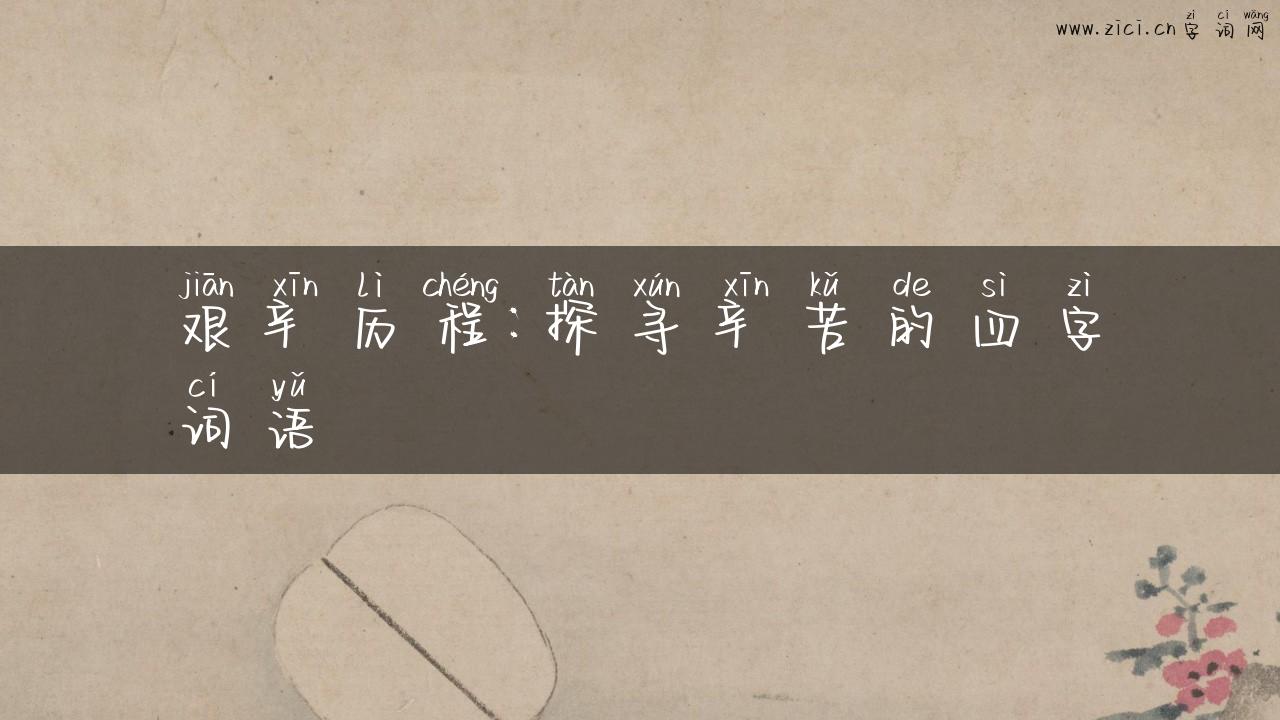 zì cí wǎng
www.zici.cn字词网
jiān xīn lì chéng tàn xún xīn kǔ de sì zì
艰辛历程:探寻辛苦的四字
cí yǔ
词语